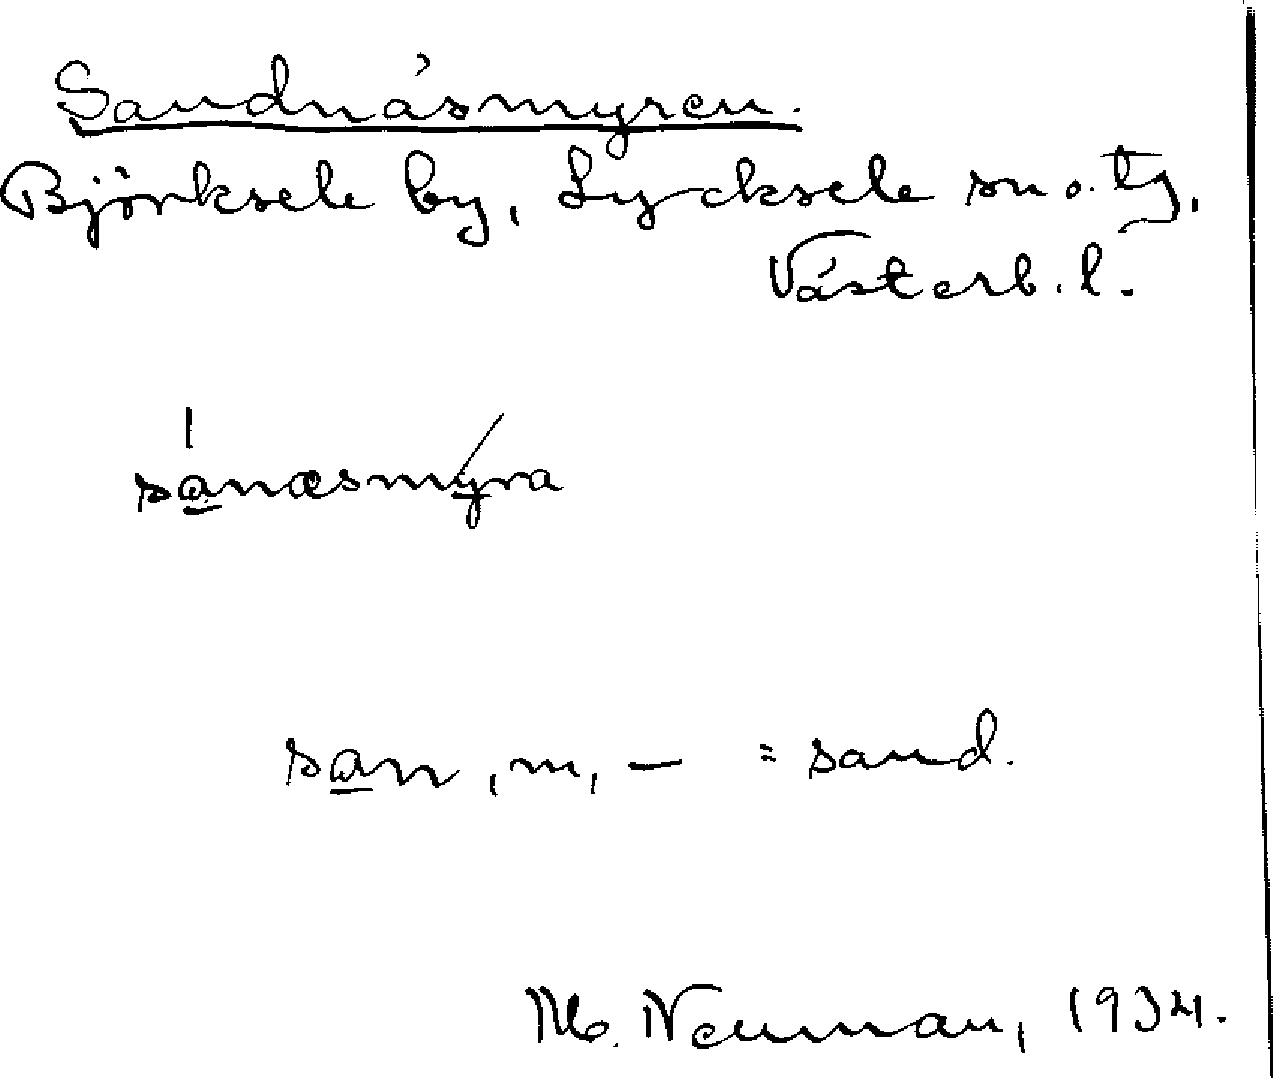 Sandnäsmyren.
Björksele by, Lycksele sn o. tg,
Västerb. l.
sanæsmyra
san, m, — = sand.
M. Neuman, 1934.